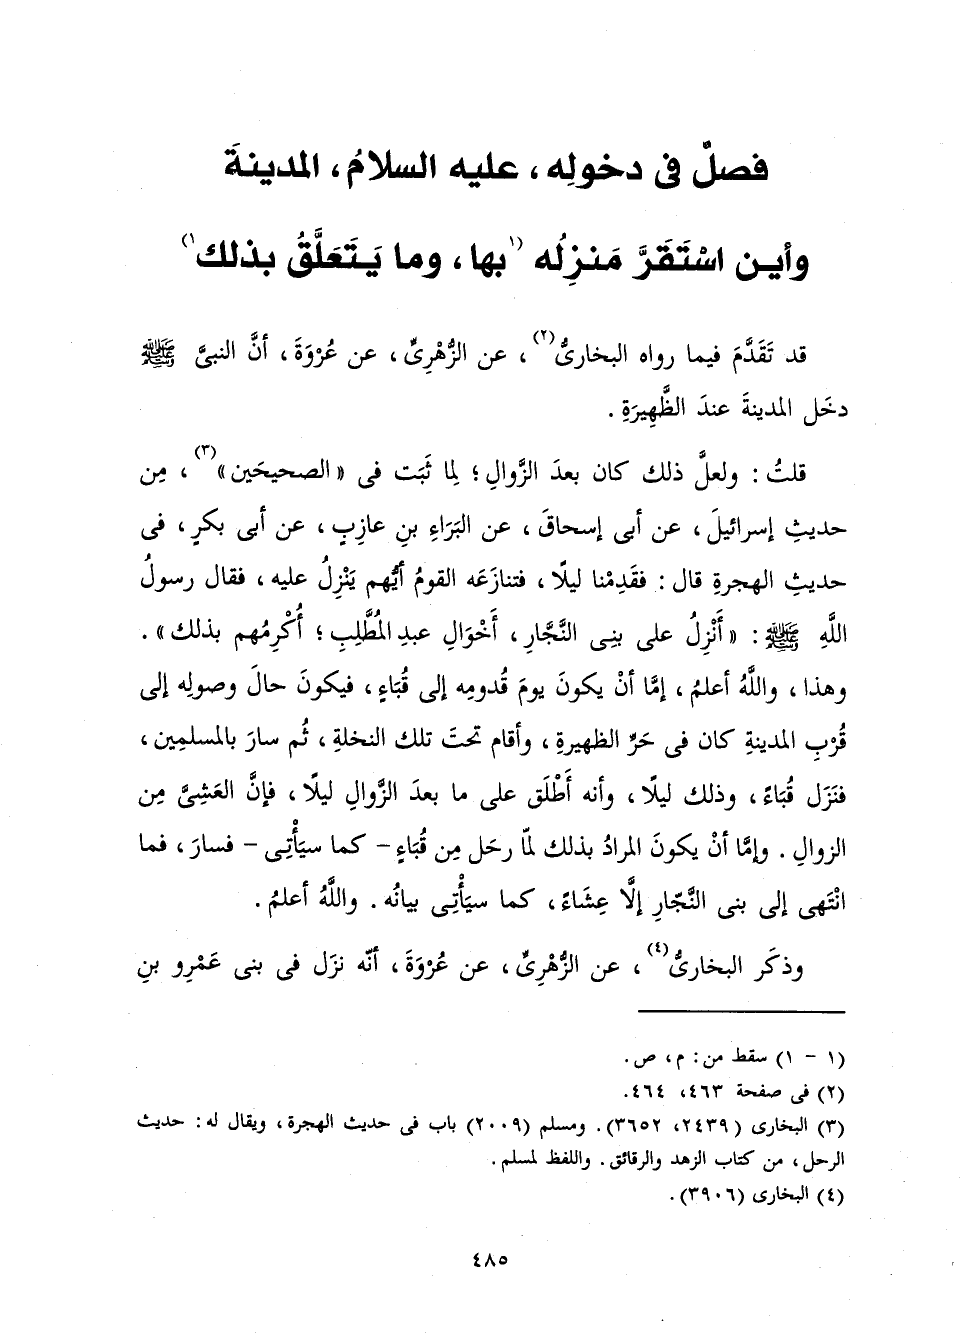 فصلٌ فى دخولِه ، عليه السلامُ ، المدينةَ
وأين اسْتَقَرَّ مَنزِلُه (١ بها ، وما يَتَعَلَّقُ بذلك ١)
قد تَقَدَّمَ فيما رواه البخارىُّ (٢) ، عن الزُّهْرِىِّ ، عن عُرْوَةَ ، أنَّ النبىَّ ﷺ
دخَل المدينةَ عندَ الظَّهِيرَةِ .
قلتُ : ولعلَّ ذلك كان بعدَ الزَّوالِ ؛ لِما ثَبَت فى « الصحيحَين » (٣) ، مِن
حديثِ إسرائيلَ ، عن أبى إسحاقَ ، عن البَرَاءِ بنِ عازِبٍ ، عن أبى بكرٍ ، فى
حديثِ الهجرةِ قال : فقَدِمْنا ليلًا ، فتنازَعَه القومُ أيُّهم يَنْزِلُ عليه ، فقال رسولُ
اللَّهِ ﷺ : « أَنْزِلُ على بنِى النَّجَّارِ ، أَخْوَالِ عبدِ المُطَّلِبِ ؛ أُكْرِمُهم بذلك » .
وهذا ، واللَّهُ أعلمُ ، إمَّا أنْ يكونَ يومَ قُدومِه إلى قُبَاءٍ ، فيكونَ حالَ وصولِه إلى
قُرْبِ المدينةِ كان فى حَرِّ الظهيرةِ ، وأقام تحتَ تلك النخلةِ ، ثُم سارَ بالمسلمِين ،
فنَزَل قُبَاءً ، وذلك ليلًا ، وأنه أَطْلَق على ما بعدَ الزَّوالِ ليلًا ، فإنَّ العَشِىَّ مِن
الزوالِ . وإمَّا أنْ يكونَ المرادُ بذلك لمّا رحَل مِن قُبَاءٍ - كما سيَأْتِى - فسارَ ، فما
انْتَهى إلى بنى النَّجّارِ إلَّا عِشَاءً ، كما سيَأْتِى بيانُه . واللَّهُ أعلمُ .
وذكَر البخارىُّ (٤) ، عن الزُّهْرِىِّ ، عن عُرْوَةَ ، أنّه نزَل فى بنى عَمْرِو بنِ
(١ - ١) سقط من : م ، ص .
(٢) فى صفحة ٤٦٣ ، ٤٦٤ .
(٣) البخارى (٢٤٣٩ ، ٣٦٥٢) . ومسلم (٢٠٠٩) باب فى حديث الهجرة ، ويقال له : حديث
الرحل ، من كتاب الزهد والرقائق . واللفظ لمسلم .
(٤) البخارى (٣٩٠٦) .
٤٨٥